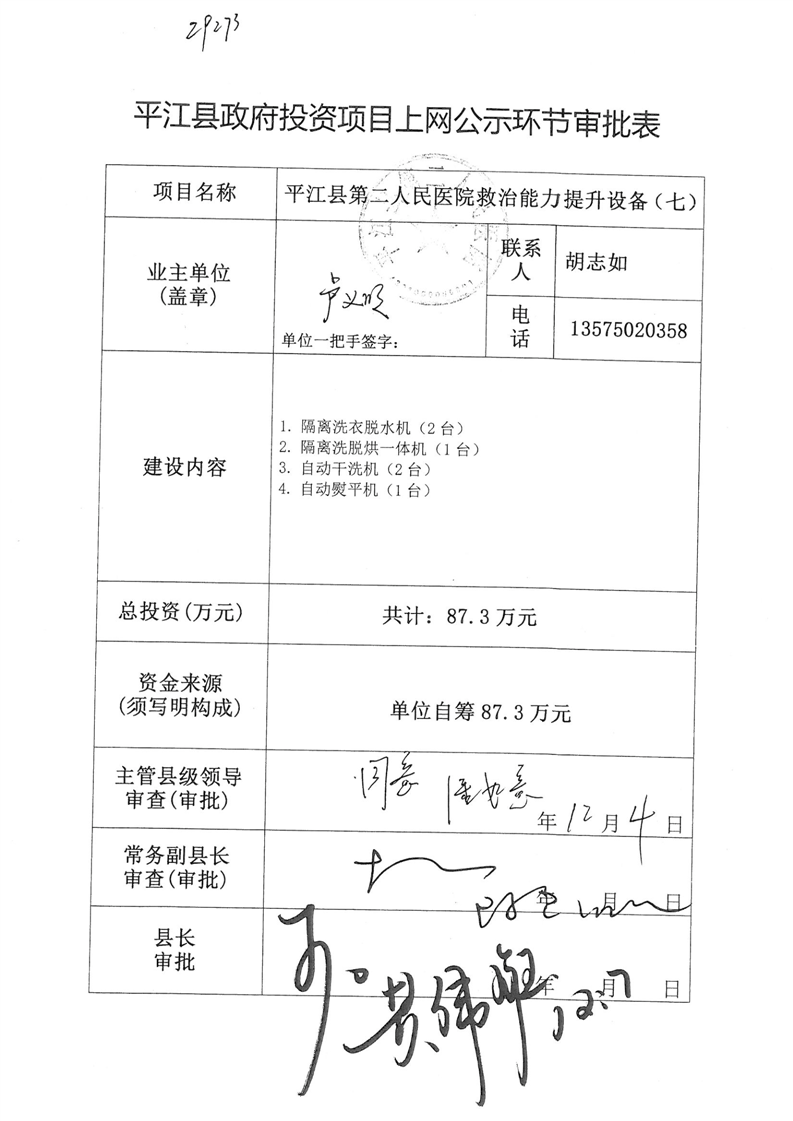 29273
平江县政府投资项目上网公示环节审批表
项目名称
平江县第二人民医院救治能力提升设备（七）
业主单位
(盖章)
单位一把手签字：
联系
人
胡志如
电
话
13575020358
建设内容
1. 隔离洗衣脱水机（2 台）
2. 隔离洗脱烘一体机（1 台）
3. 自动干洗机（2 台）
4. 自动熨平机（1 台）
总投资(万元)
共计：87.3 万元
资金来源
(须写明构成)
单位自筹 87.3 万元
主管县级领导
审查(审批)
同意
年 12 月 4 日
常务副县长
审查(审批)
年 月 日
县长
审批
年 月 日
12.7